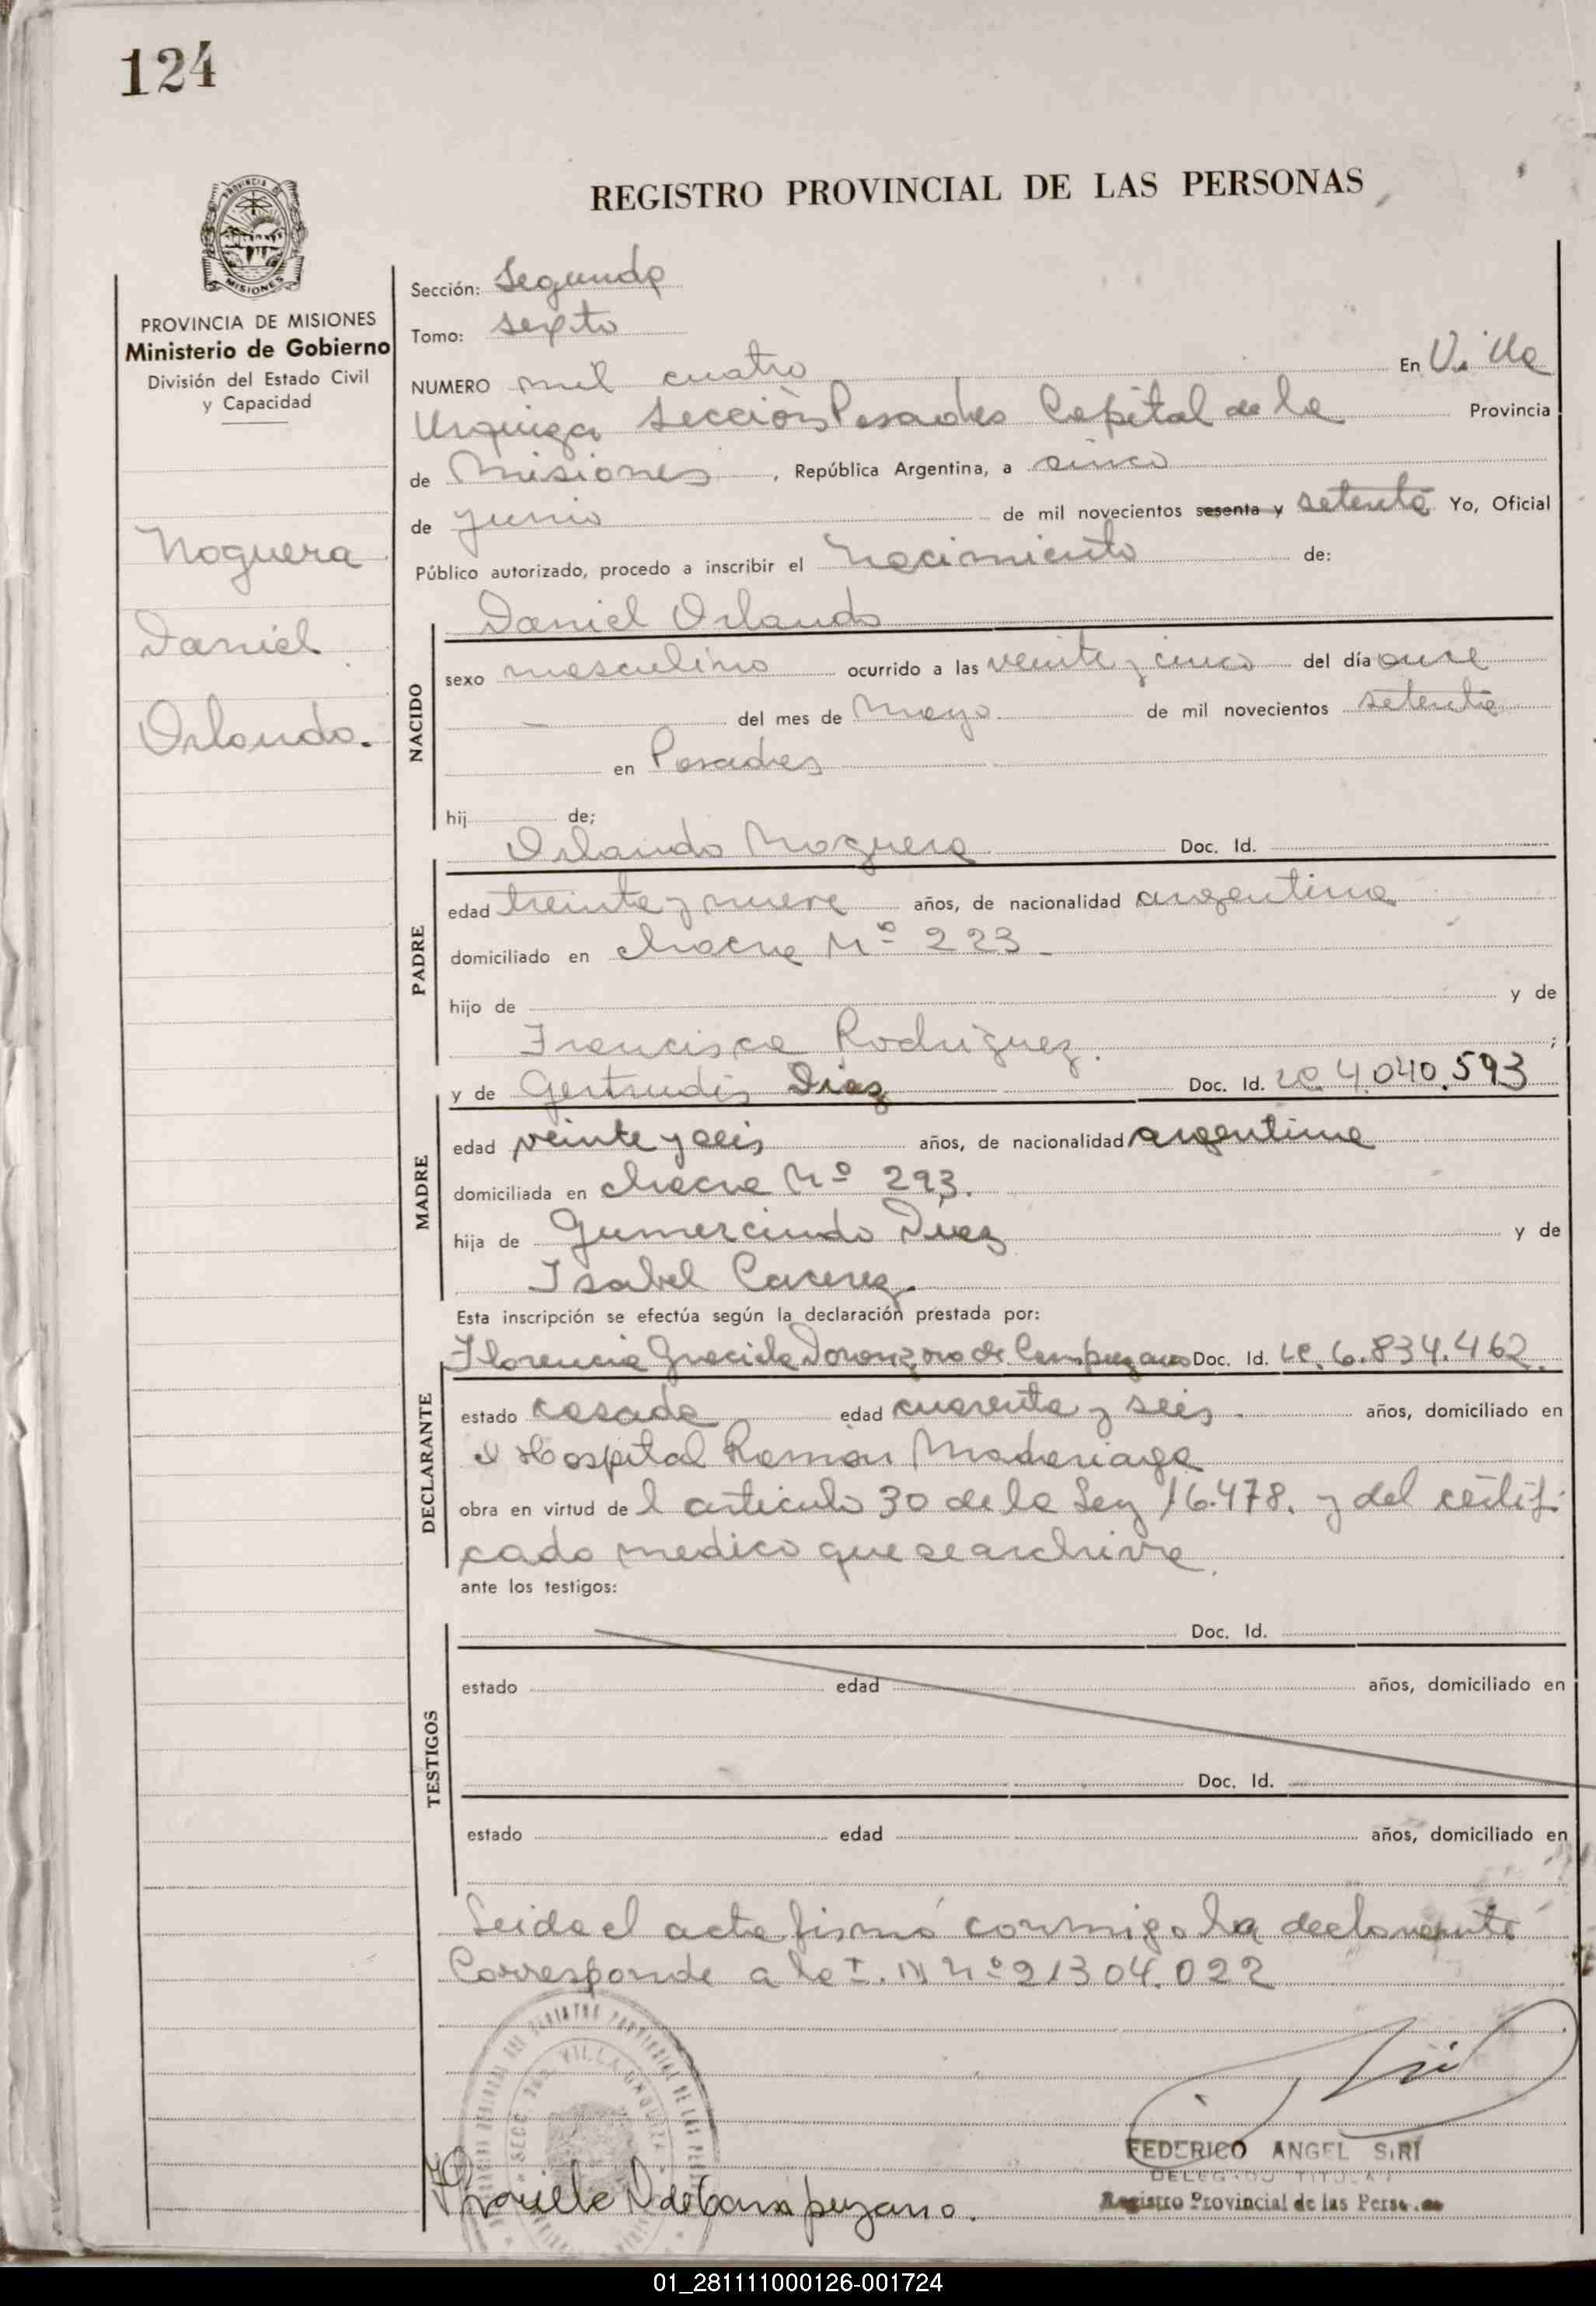 124
REGISTRO PROVINCIAL DE LAS PERSONAS
PROVINCIA DE MISIONES
MISIONES
PROVINCIA DE MISIONES
Ministerio de Gobierno
División del Estado Civil
y Capacidad
Noguera
Daniel
Orlando.
Sección: Segunda
Tomo: sexto
NUMERO mil cuatro En Villa
Urquiza Sección Posadas Capital de la Provincia
de Misiones, República Argentina, a cinco
de junio de mil novecientos sesenta y setenta Yo, Oficial
Público autorizado, procedo a inscribir el nacimiento de:
Daniel Orlando
NACIDO
sexo masculino ocurrido a las veinte y cinco del día once
— del mes de Mayo de mil novecientos setenta
en Posadas
hij de;
Orlando Noguera Doc. Id.
PADRE
edad treinta y nueve años, de nacionalidad argentina
domiciliado en chacra Nº 223
hijo de y de
Francisca Rodriguez. ;
y de Gertrudis Diaz Doc. Id. LC. 4.040.593
MADRE
edad veinte y seis años, de nacionalidad argentina
domiciliada en chacra Nº 293.
hija de Gumercindo Diaz y de
Isabel Cacerez.
Esta inscripción se efectúa según la declaración prestada por:
Florencia Graciela de Campuzano Doc. Id. LC. 6.834.462.
DECLARANTE
estado casada edad cuarenta y seis. años, domiciliado en
el Hospital Ramón Madariaga
obra en virtud del articulo 30 de la Ley 16.478. y del certifi
cado medico que se archiva.
ante los testigos:
TESTIGOS
Doc. Id.
estado edad años, domiciliado en
Doc. Id.
estado edad años, domiciliado en
Leida el acta firmó conmigo la declarante
Corresponde a la I. M Nº 21304.022
SECC. 2da. VILLA URQUIZA
FEDERICO ANGEL SIRI
DELEGADO TITULAR
Registro Provincial de las Personas
D de Campuzano.
01_281111000126-001724